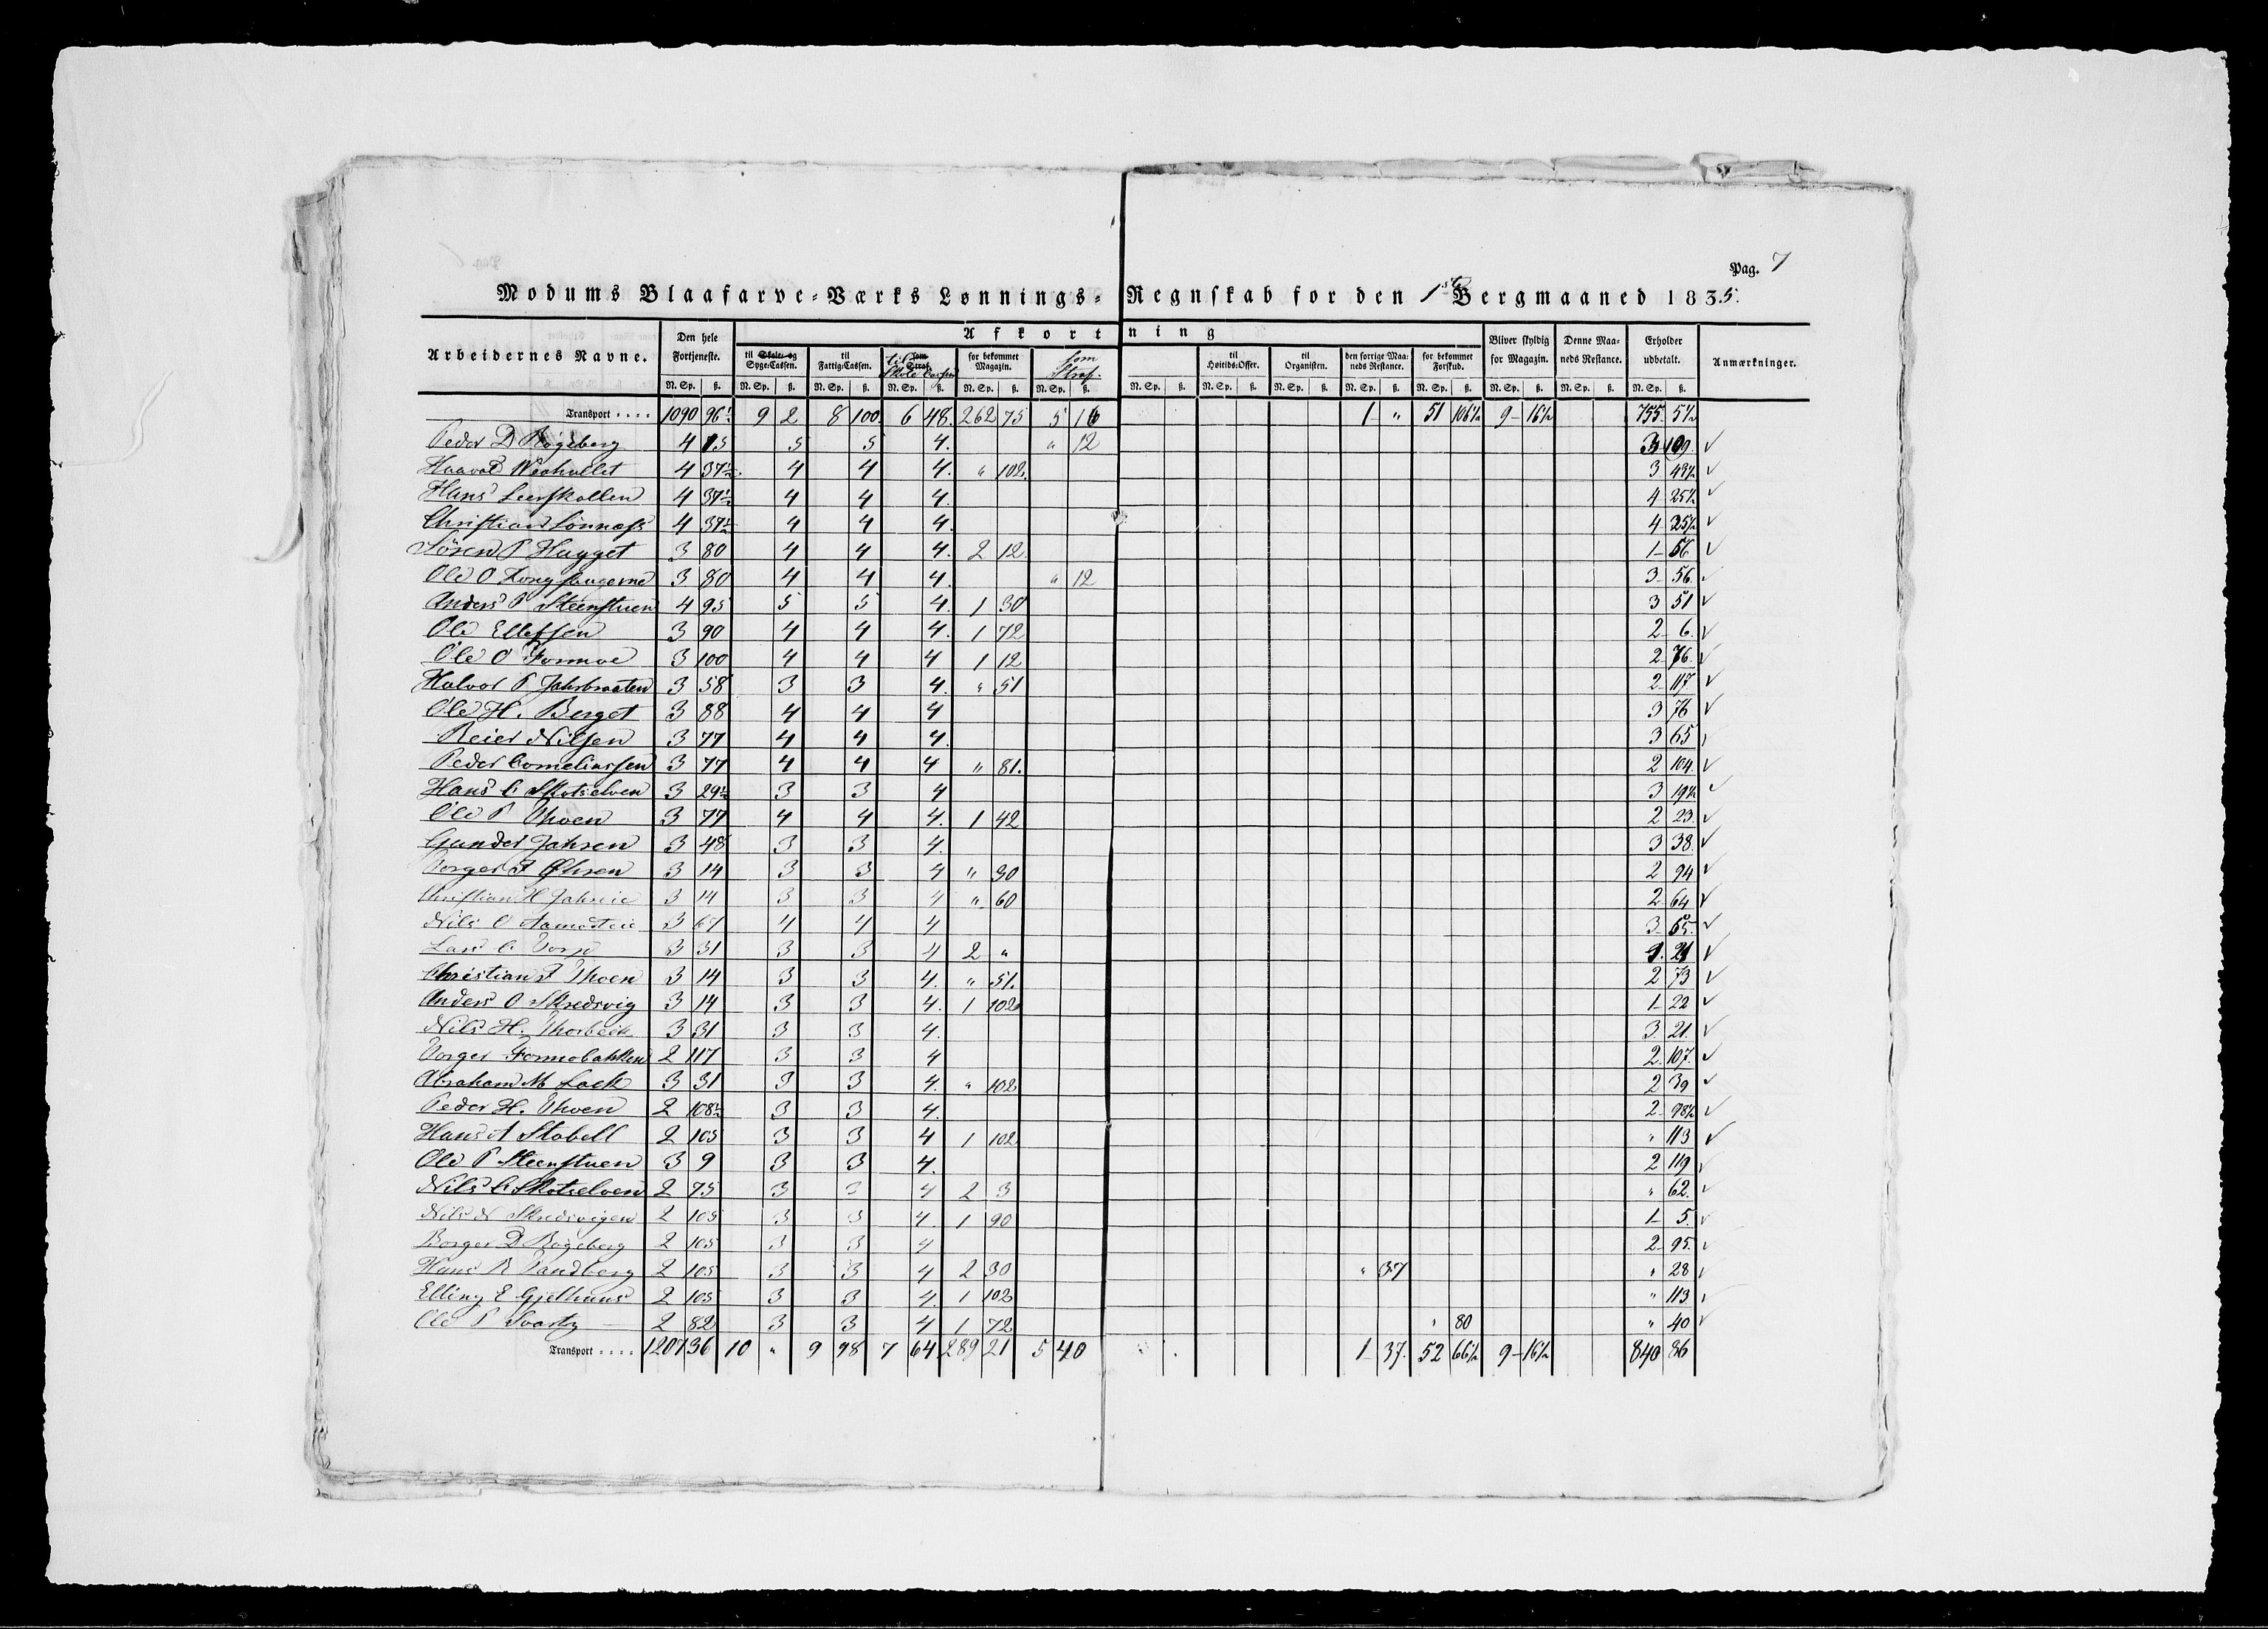 Pag. 7
Modums Blaafarve-Værks Lønnings-Regnskab for den 1ste Bergmaaned 1835.
Arbeidernes Navne. Den hele Fortjeneste. Afkortning Bliver skyldig for Magazin. Denne Maaneds Restance. Erholder udbetalt. Anmærkninger.
til Skole- og Syge-Cassen. til Fattig-Cassen. som Straf. til Skole Cassen for bekommet Magazin. som Straf. til Høitids-Offer. til Organisten. den forrige Maaneds Restance. for bekommet Forskud.
N. Sp. ß. N. Sp. ß. N. Sp. ß. N. Sp. ß. N. Sp. ß. N. Sp. ß. N. Sp. ß. N. Sp. ß. N. Sp. ß. N. Sp. ß. N. Sp. ß. N. Sp. ß. N. Sp. ß. N. Sp. ß.
Transport . . . . 1090 96½ 9 2 8 100 6 48. 262 75 5 16 1 " 51 106½ 9 16½ 755 5½
Peder D Bøgeberg 4 15 5 5 4. " 12 3 109. ✓
Haavel 4 37½ 4 4 4. " 102. 3 43½ ✓
Hans Leerskallen 4 37½ 4 4 4. 4 25½ ✓
Christian Lønnæss 4 37½ 4 4 4. 4 25½ ✓
Sören P Hagget 3 80 4 4 4. 2 12. 1 56 ✓
Ole O 3 80 4 4 4. " 12 3 56. ✓
Anders P Steenstuen 4 95 5 5 4. 1 30 3 51 ✓
Ole Ellefsen 3 90 4 4 4. 1 72 2 6. ✓
Ole O Formoe 3 100 4 4 4 1 12 2 76. ✓
Halvor P. Jahrbraaten 3 58 3 3 4. " 51 2 117. ✓
Ole H. Berget 3 88 4 4 4 3 76 ✓
Reier Nilsen 3 77 4 4 4. 3 65 ✓
Peder Corneliussen 3 77 4 4 4 " 81. 2 104. ✓
Hans C Skotselven 3 29½ 3 3 4 3 19½ ✓
Ole P Thoen 3 77 4 4 4. 1 42 2 23. ✓
Gunder Jahren 3 48 3 3 4. 3 38. ✓
Torger J Øhren 3 14 3 3 4 " 30 2 94 ✓
Christian H Jahreie 3 14 3 3 4 " 60 2 64 ✓
Nils O 3 67 4 4 4 3 55. ✓
Lars C Torp 3 31 3 3 4 2 " 1. 21 ✓
Christian J Thoen 3 14 3 3 4. " 51. 2 73 ✓
Anders O Skredsvig 3 14 3 3 4. 1 102 1 22 ✓
Nils H. Thorbeck 3 31 3 3 4. 3. 21. ✓
Torger Formobakken 2 117 3 3 4 2. 107. ✓
Abraham M Lack 3 31 3 3 4. " 102 2 39 ✓
Peder H. Thoen 2 108½ 3 3 4. 2 98½ ✓
Hans A Stabell 2 105 3 3 4 1 102 " 113 ✓
Ole P Steenstuen 3 9 3 3 4. 2 119 ✓
Nils C Skotselven 2 75 3 3 4 2 3 " 62. ✓
Nils N Skredsvigen 2 105 3 3 4. 1 90 1 5. ✓
Borger D Bøgeberg 2 105 3 3 4 2 95. ✓
Hans R Sandberg 2 105 3 3 4 2 30 " 37 " 28 ✓
Elling E Gjelhuus 2 105 3 3 4. 1 102 " 113. ✓
Ole P Svarty 2 82 3 3 4 1 72 " 80 " 40 ✓
Transport . . . . 1207 36 10 " 9 98 7 64. 289 21 5 40 1 37. 52 66½ 9 16½ 840 86